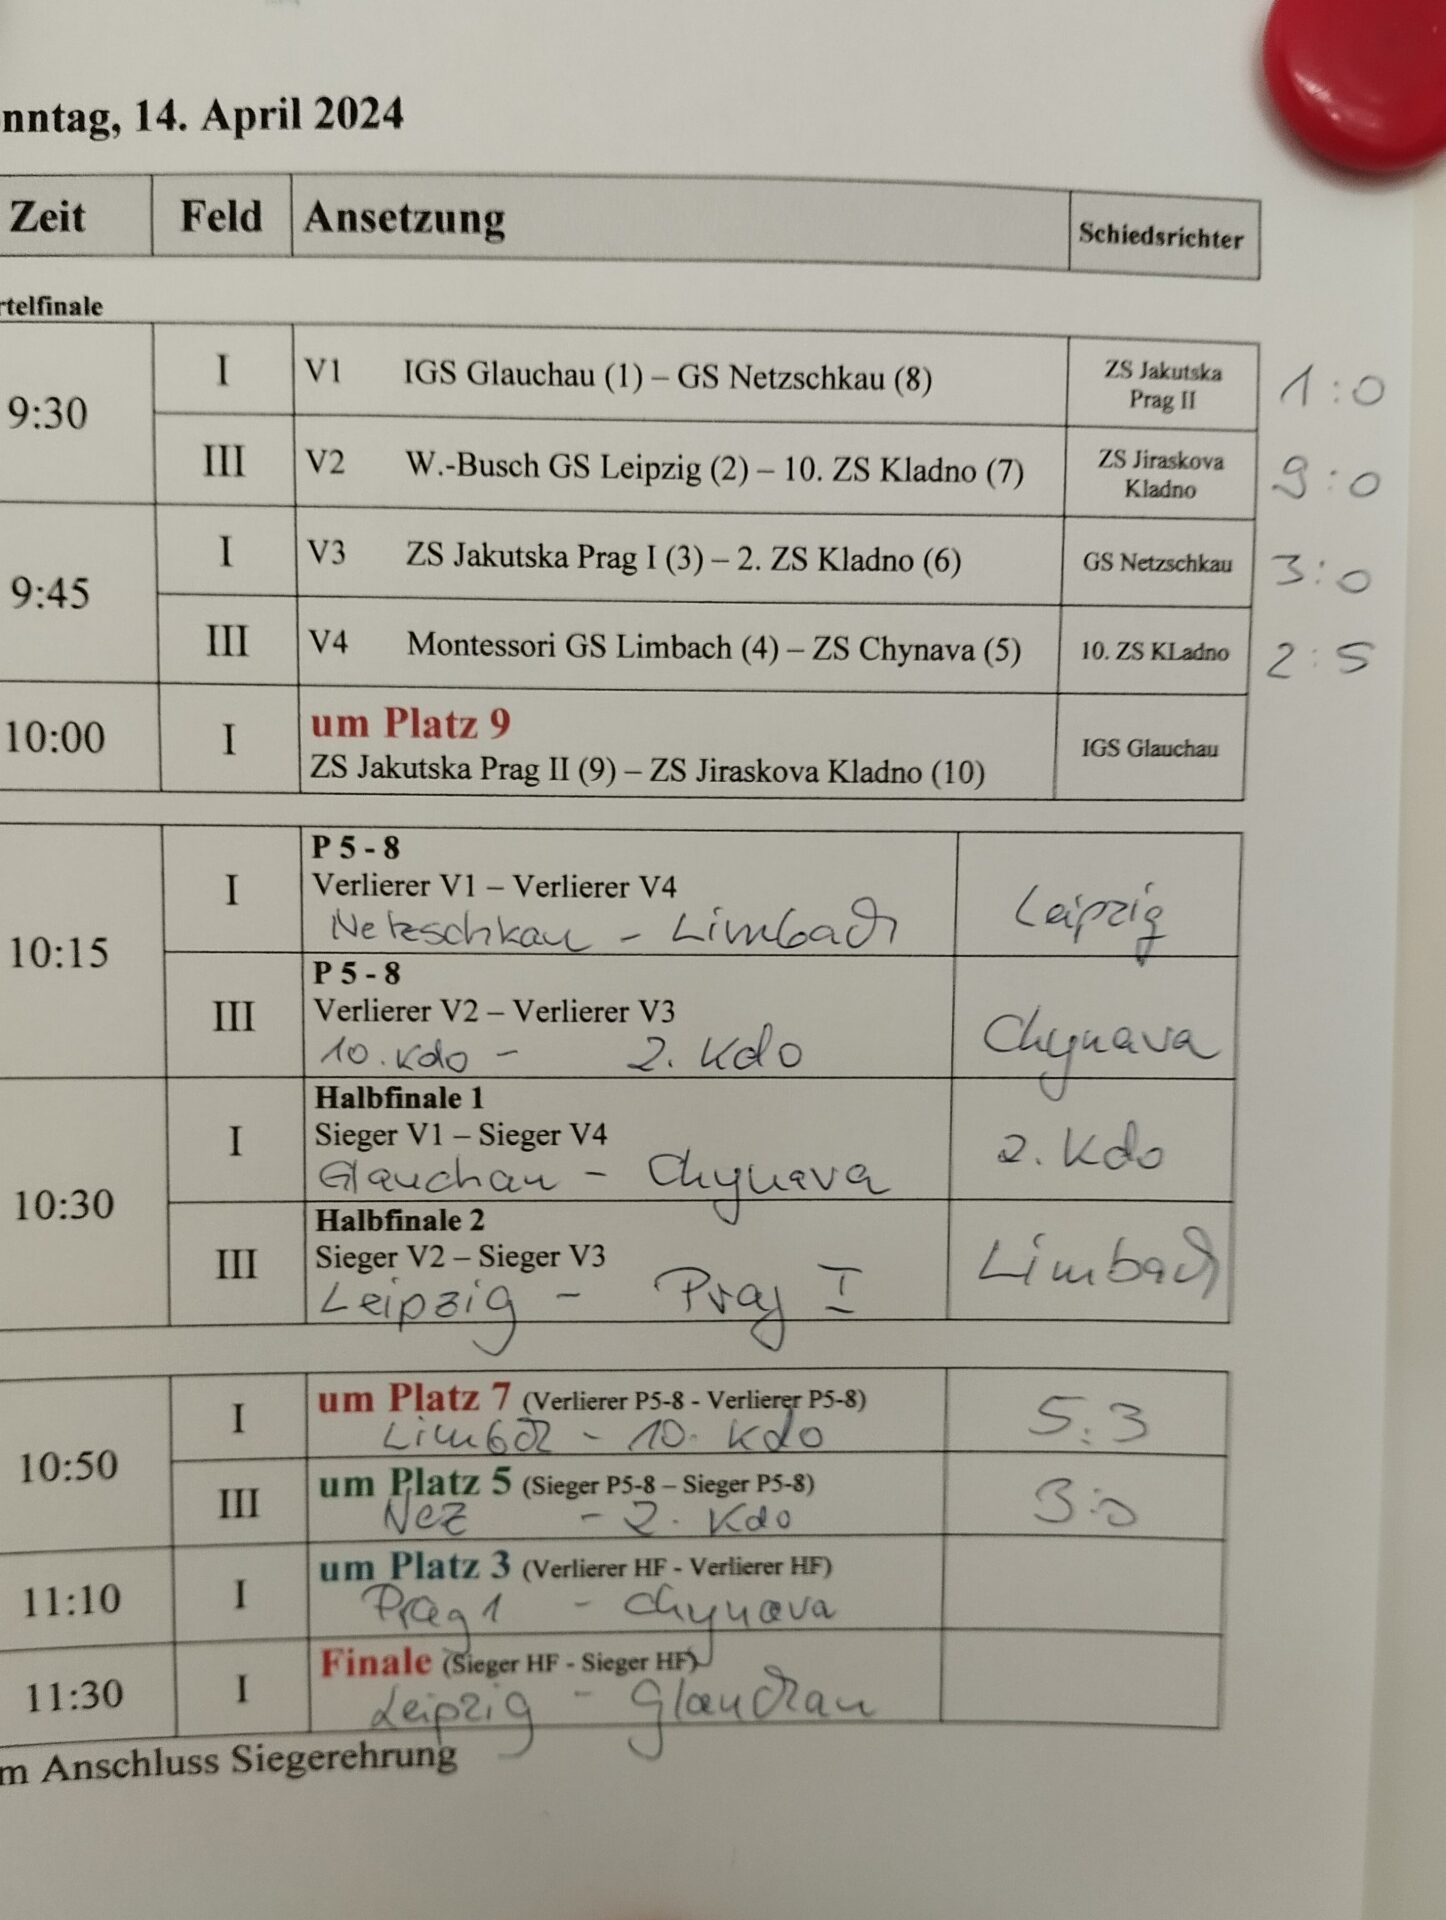 nntag, 14. April 2024
Zeit Feld Ansetzung Schiedsrichter
rtelfinale
9:30 I V1 IGS Glauchau (1) – GS Netzschkau (8) ZS Jakutska Prag II 1:0
III V2 W.-Busch GS Leipzig (2) – 10. ZS Kladno (7) ZS Jiraskova Kladno 9:0
9:45 I V3 ZS Jakutska Prag I (3) – 2. ZS Kladno (6) GS Netzschkau 3:0
III V4 Montessori GS Limbach (4) – ZS Chynava (5) 10. ZS KLadno 2:5
10:00 I um Platz 9
ZS Jakutska Prag II (9) – ZS Jiraskova Kladno (10) IGS Glauchau
10:15 I P 5 - 8
Verlierer V1 – Verlierer V4
Netzschkau – Limbach Leipzig
III P 5 - 8
Verlierer V2 – Verlierer V3
10. Kdo – 2. Kdo Chynava
10:30 I Halbfinale 1
Sieger V1 – Sieger V4
Glauchau – Chynava 2. Kdo
III Halbfinale 2
Sieger V2 – Sieger V3
Leipzig – Prag I Limbach
10:50 I um Platz 7 (Verlierer P5-8 - Verlierer P5-8)
Limbch – 10. Kdo 5:3
III um Platz 5 (Sieger P5-8 – Sieger P5-8)
Nez – 2. Kdo 3:0
11:10 I um Platz 3 (Verlierer HF - Verlierer HF)
Prag 1 – Chynava
11:30 I Finale (Sieger HF - Sieger HF)
Leipzig – Glauchau
m Anschluss Siegerehrung